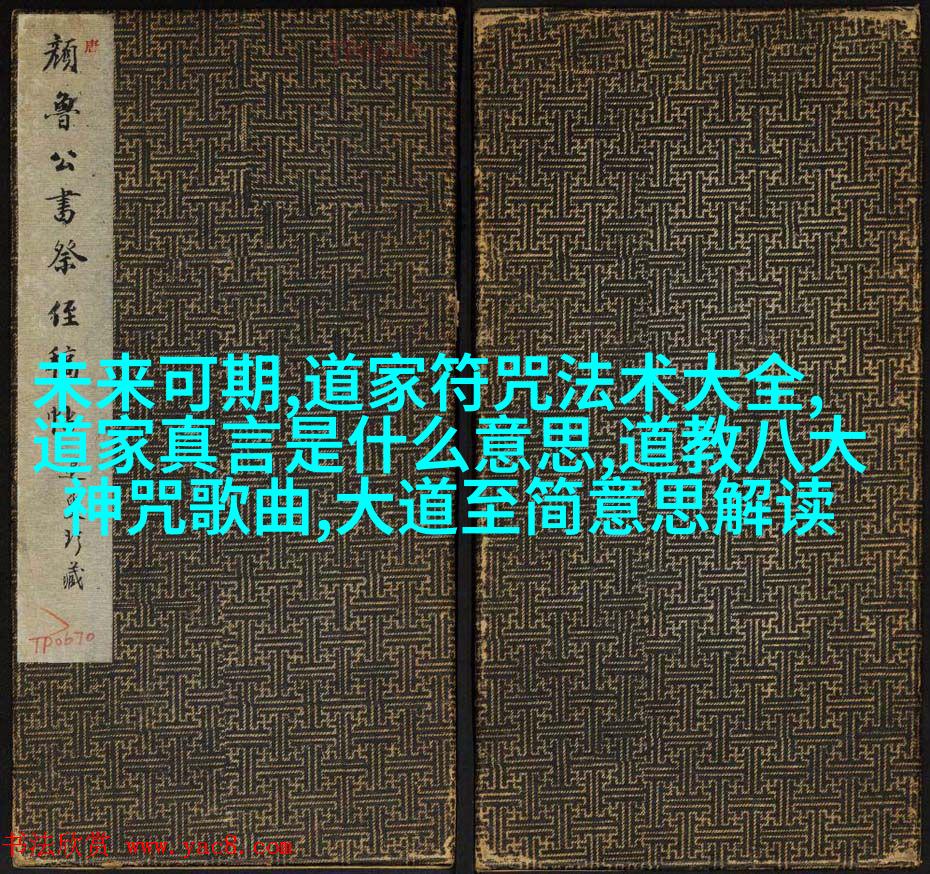 唐
颜鲁公书祭侄稿
珍藏
TP0670
未来可期,道家符咒法术大全,
道家真言是什么意思,道教八大
神咒歌曲,大道至简意思解读
书法欣赏 www.yac8.com